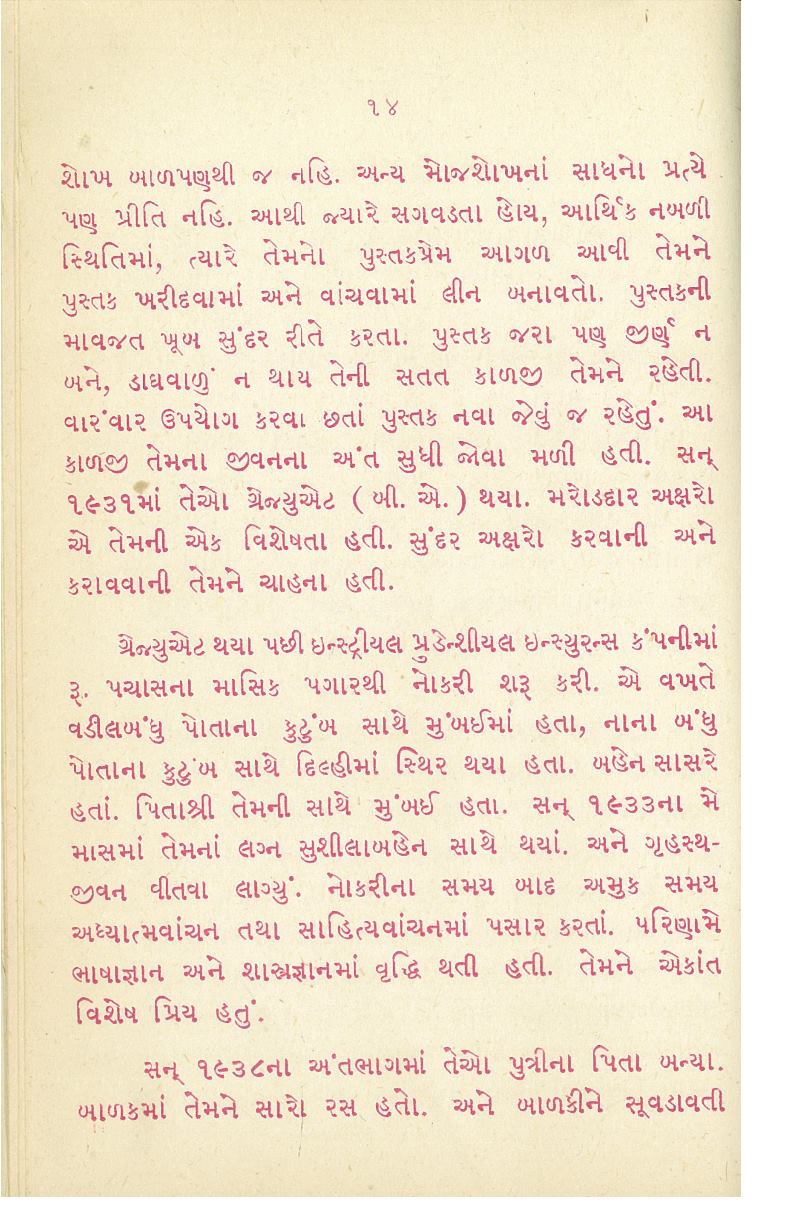 ૧૪
શોખ બાળપણથી જ નહિ. અન્ય મોજશોખનાં સાધનો પ્રત્યે
પણ પ્રીતિ નહિ. આથી જ્યારે સગવડતા હોય, આર્થિક નબળી
સ્થિતિમાં, ત્યારે તેમનો પુસ્તકપ્રેમ આગળ આવી તેમને
પુસ્તક ખરીદવામાં અને વાંચવામાં લીન બનાવતો. પુસ્તકની
માવજત ખૂબ સુંદર રીતે કરતા. પુસ્તક જરા પણ જીર્ણ ન
બને, ડાઘવાળું ન થાય તેની સતત કાળજી તેમને રહેતી.
વારંવાર ઉપયોગ કરવા છતાં પુસ્તક નવા જેવું જ રહેતું. આ
કાળજી તેમના જીવનના અંત સુધી જોવા મળી હતી. સન્
૧૯૩૧માં તેઓ ગ્રેજ્યુએટ ( બી. એ. ) થયા. મરોડદાર અક્ષરો
એ તેમની એક વિશેષતા હતી. સુંદર અક્ષરો કરવાની અને
કરાવવાની તેમને ચાહના હતી.
ગ્રેજ્યુએટ થયા પછી ઇન્સ્ટ્રીયલ પ્રુડેન્શીયલ ઇન્સ્યુરન્સ કંપનીમાં
રૂ. પચાસના માસિક પગારથી નોકરી શરૂ કરી. એ વખતે
વડીલબંધુ પોતાના કુટુંબ સાથે મુંબઈમાં હતા, નાના બંધુ
પોતાના કુટુંબ સાથે દિલ્હીમાં સ્થિર થયા હતા. બહેન સાસરે
હતાં. પિતાશ્રી તેમની સાથે મુંબઈ હતા. સન્ ૧૯૩૩ના મે
માસમાં તેમનાં લગ્ન સુશીલાબહેન સાથે થયાં. અને ગૃહસ્થ-
જીવન વીતવા લાગ્યું. નોકરીના સમય બાદ અમુક સમય
અધ્યાત્મવાંચન તથા સાહિત્યવાંચનમાં પસાર કરતાં. પરિણામે
ભાષાજ્ઞાન અને શાસ્ત્રજ્ઞાનમાં વૃદ્ધિ થતી હતી. તેમને એકાંત
વિશેષ પ્રિય હતું.
સન્ ૧૯૩૮ના અંતભાગમાં તેઓ પુત્રીના પિતા બન્યા.
બાળકમાં તેમને સારો રસ હતો. અને બાળકીને સૂવડાવતી